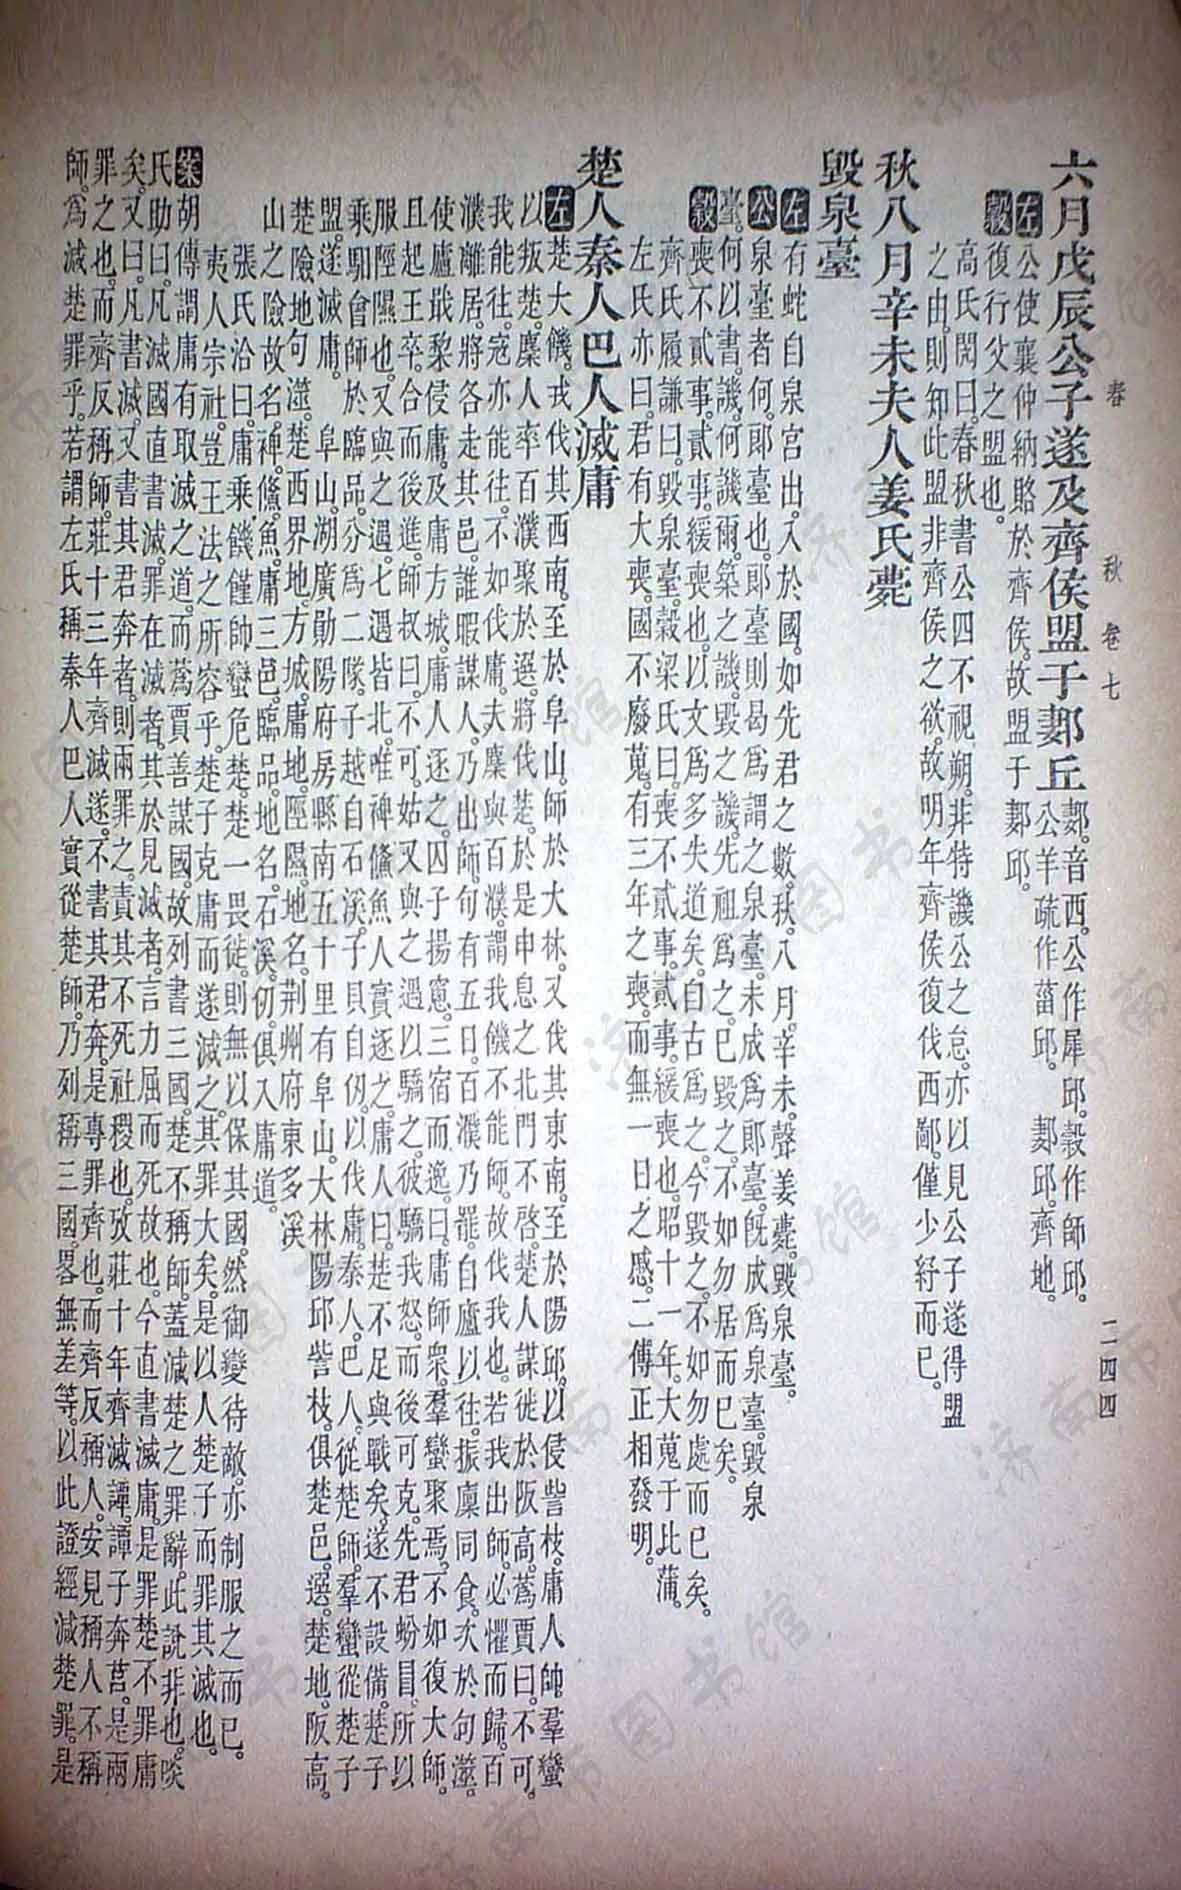 春秋 卷七 二四四
六月戊辰公子遂及齊侯盟于郪丘 郪。音西。公作犀邱。穀作師邱。
公羊疏作菑邱。 郪邱。齊地。
左 公使襄仲納賂於齊侯。故盟于郪邱。
穀 復行父之盟也。
高氏閌曰。春秋書公四不視朔。非特譏公之怠。亦以見公子遂得盟
之由。則知此盟非齊侯之欲。故明年齊侯復伐西鄙。僅少紓而已。
秋八月辛未夫人姜氏薨
毀泉臺
左 有蛇自泉宮出。入於國。如先君之數。秋。八月。辛未。聲姜薨。毀泉臺。
公 泉臺者何。郎臺也。郎臺則曷爲謂之泉臺。未成爲郎臺。旣成爲泉臺。毀泉
臺。何以書。譏。何譏爾。築之譏。毀之譏。先祖爲之。已毀之。不如勿居而已矣。
穀 喪不貳事。貳事。緩喪也。以文爲多失道矣。自古爲之。今毀之。不如勿處而已矣。
齊氏履謙曰。毀泉臺。穀梁氏曰。喪不貳事。貳事。緩喪也。昭十一年。大蒐于比蒲。
左氏亦曰。君有大喪。國不廢蒐。有三年之喪。而無一日之慼。二傳正相發明。
楚人秦人巴人滅庸
左 楚大饑。戎伐其西南。至於阜山。師於大林。又伐其東南。至於陽邱。以侵訾枝。庸人帥羣蠻
以叛楚。麇人率百濮聚於選。將伐楚。於是申息之北門不啓。楚人謀徙於阪高。蔿賈曰。不可。
我能往。寇亦能往。不如伐庸。夫麇與百濮。謂我饑不能師。故伐我也。若我出師。必懼而歸。百
濮離居。將各走其邑。誰暇謀人。乃出師。旬有五日。百濮乃罷。自廬以往。振廩同食。次於句澨。
使廬戢黎侵庸。及庸方城。庸人逐之。囚子揚窻。三宿而逸。曰。庸師衆。羣蠻聚焉。不如復大師。
且起王卒。合而後進。師叔曰。不可。姑又與之遇以驕之。彼驕我怒。而後可克。先君蚡冒。所以
服陘隰也。又與之遇。七遇皆北。唯裨鯈魚人實逐之。庸人曰。楚不足與戰矣。遂不設備。楚子
乘馹會師於臨品。分爲二隊。子越自石溪。子貝自仞。以伐庸。秦人。巴人。從楚師。羣蠻從楚子
盟。遂滅庸。 阜山。湖廣勛陽府房縣南五十里有阜山。大林陽邱訾枝。俱楚邑。選。楚地。阪高。
楚險地。句澨。楚西界地。方城。庸地。陘隰。地名。荆州府東多溪
山之險。故名。裨。鯈。魚。庸三邑。臨品。地名。石溪。仞。俱入庸道。
張氏洽曰。庸乘饑饉。師蠻危楚。楚一畏徙。則無以保其國。然御變待敵。亦制服之而已。
夷人宗社。豈王法之所容乎。楚子克庸而遂滅之。其罪大矣。是以人楚子而罪其滅也。
案 胡傳謂庸有取滅之道。而蔿賈善謀國。故列書三國。楚不稱師。蓋減楚之罪辭。此說非也。啖
氏助曰。凡滅國直書滅。罪在滅者。其於見滅者。言力屈而死故也。今直書滅庸。是罪楚不罪庸
矣。又曰。凡書滅。又書其君奔者。則兩罪之。責其不死社稷也。攷莊十年。齊滅譚。譚子奔莒。是兩
罪之也。而齊反稱師。莊十三年。齊滅遂。不書其君奔。是專罪齊也。而齊反稱人。安見稱人不稱
師。爲減楚罪乎。若謂左氏稱秦人巴人實從楚師。乃列稱三國。畧無差等。以此證經減楚罪。是